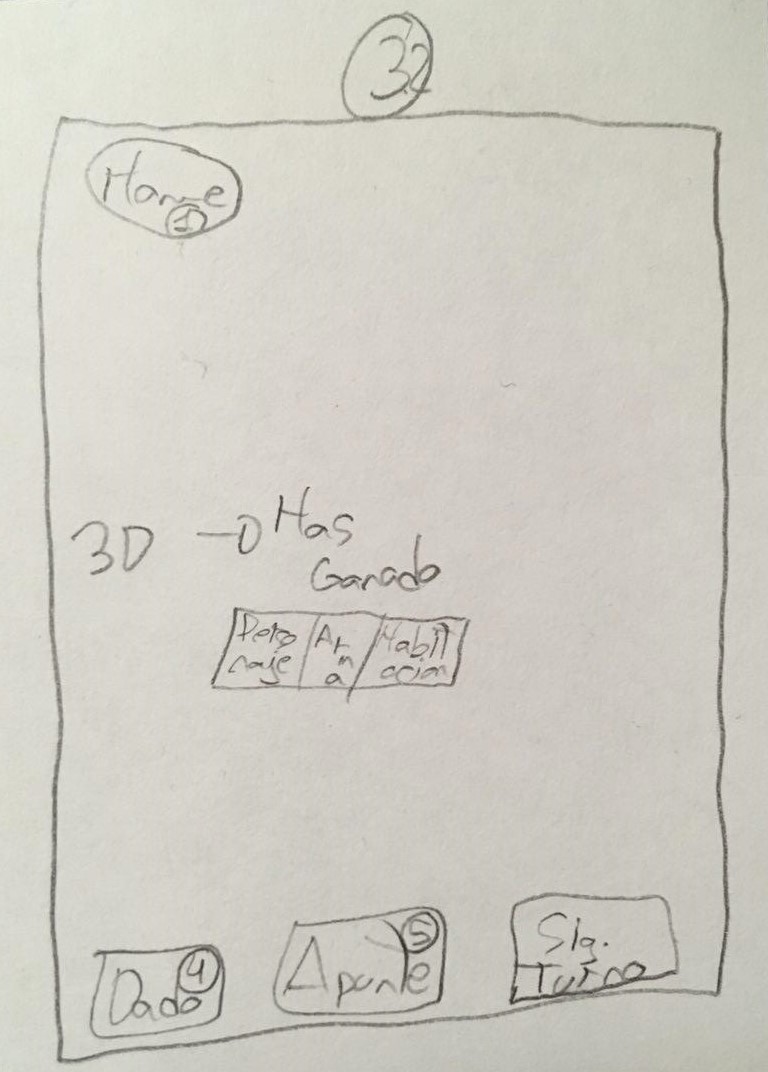 32
Home
1
3D → Has
Ganado
Perso
naje
Ar
m
a
Habit
acion
4
Dado
5
Apunte
Sig.
Turno